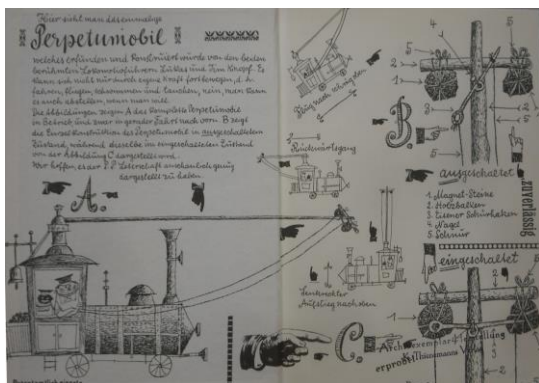 Hier sieht man das einmalige
Perpetumobil
welches erfunden und konstruiert wurde von den beiden
berühmten Lokomotivführern Lukas und Jim Knopf. Es
kann sich nicht nur durch eigene Kraft fortbewegen, d. h.
fahren, fliegen, schwimmen und tauchen, nein, man kann
es auch abstellen, wenn man will.
Die Abbildungen zeigen A das komplette Perpetumobil
im Betrieb und zwar in gerader Fahrt nach vorn. B zeigt
die Einzelkonstruktion des Perpetumobil in ausgeschaltetem
Zustand, während dieselbe im eingeschalteten Zustand
von der Abbildung C dargestellt wird.
Wir hoffen, es der P. P. Leserschaft anschaulich genug
dargestellt zu haben.
A.
Flug nach schräg oben
Rückwärtsgang
Senkrechter
Aufstieg nach oben
B.
5
4
2
1
3
5
ausgeschaltet
zuverlässig
1. Magnet-Steine
2. Holzbalken
3. Eiserner Schürhaken
4. Nagel
5. Schnur
eingeschaltet
C.
2
1
4
3
2
5
Archivexemplar
erprobt!